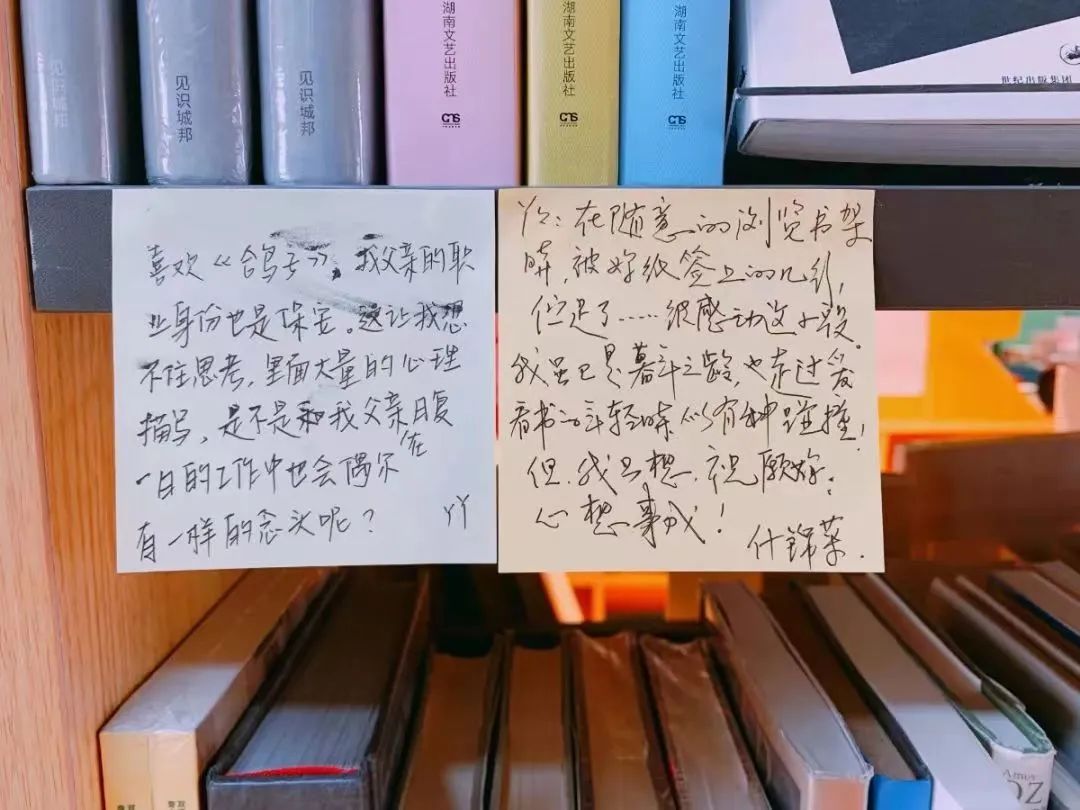 见识城邦
见识城邦
见识城邦
湖南文艺出版社
湖南文艺出版社
湖南文艺出版社
世纪出版集团
喜欢《鸽子》，我父亲的职
业身份也是保安。这让我想
不住思考，里面大量的心理
描写，是不是和我父亲日复
一日的工作中也会偶尔在
有一样的念头呢？
丫丫
丫丫：在随意的浏览书架
时，被妳纸签上的几行，
但是了……很感动这小段。
我虽已是暮年之龄，也走过爱
看书的年轻时候，似有种碰撞！
但，我只想，祝愿妳：
心想事成！
什锦菜.